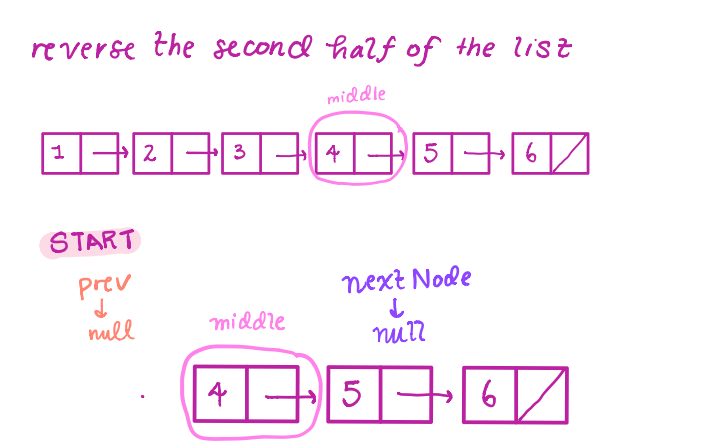 reverse the second half of the list
middle
1 2 3 4 5 6
START
prev
null
middle
next Node
null
4 5 6